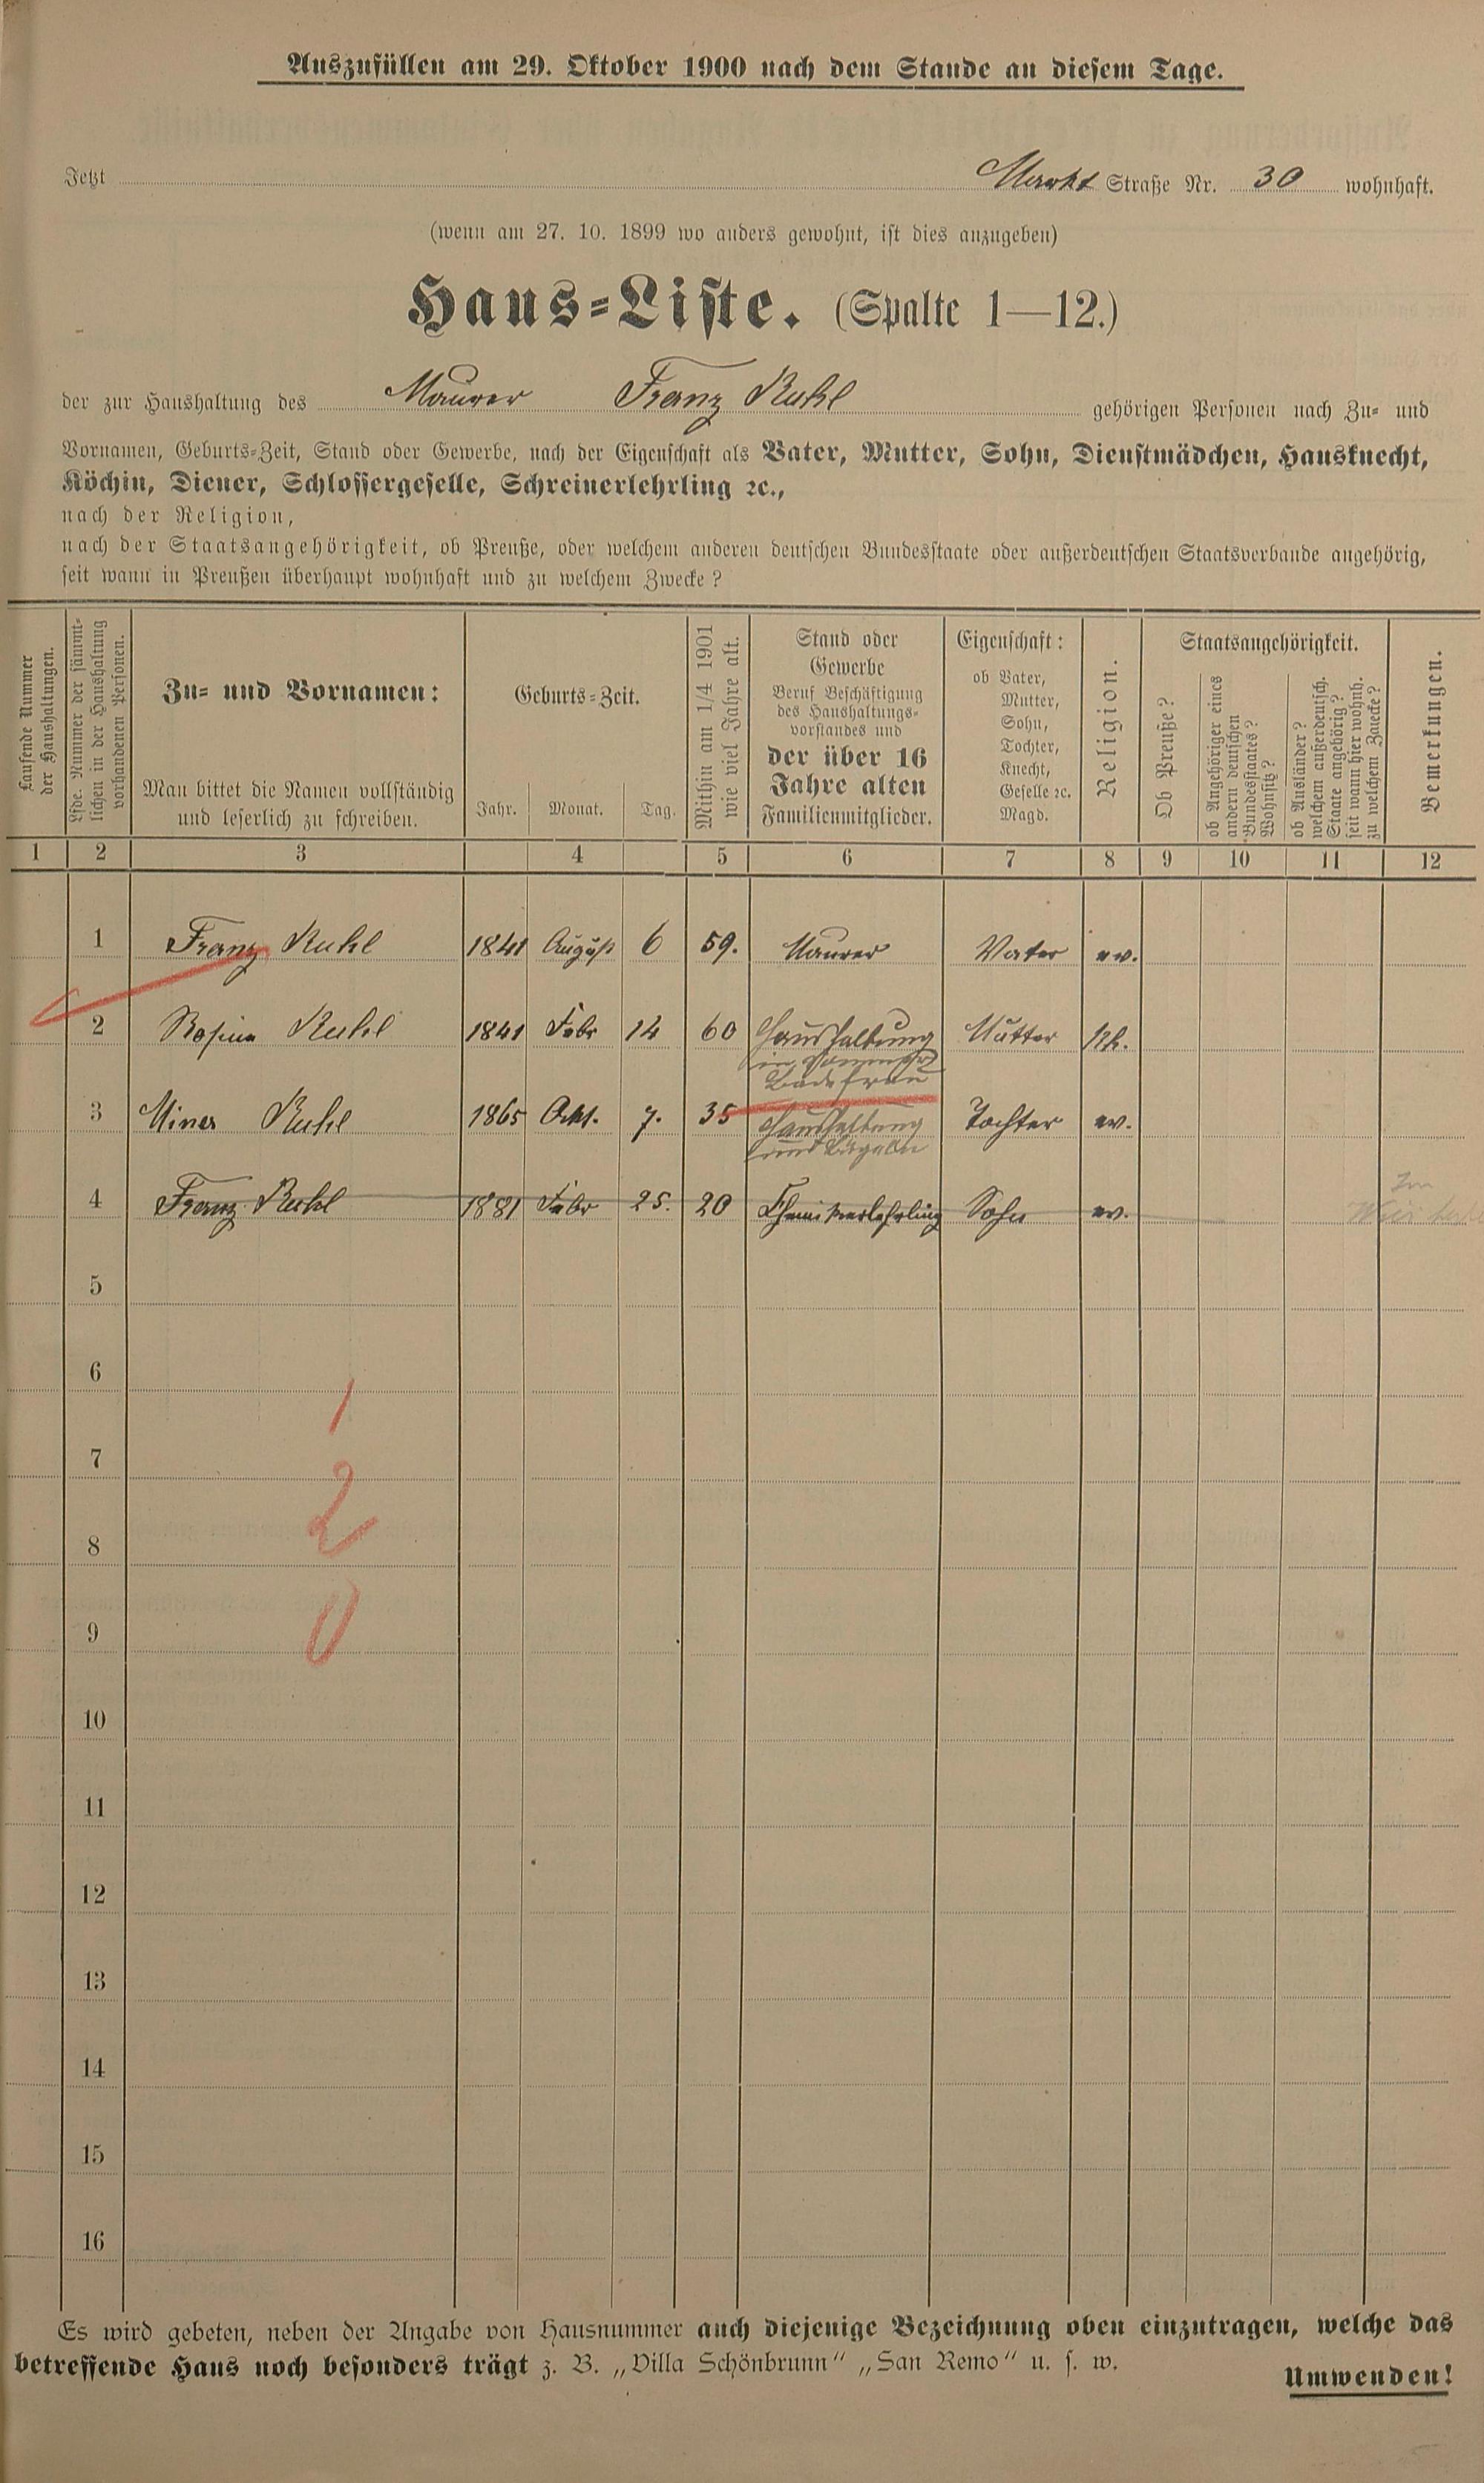 Auszufüllen am 29. Oktober 1900 nach dem Stande an diesem Tage.
Jetzt Markt Straße Nr. 30 wohnhaft.
(wenn am 27. 10. 1899 wo anders gewohnt, ist dies anzugeben)
Haus-Liste. (Spalte 1—12.)
der zur Haushaltung des Maurer Franz Ruhl gehörigen Personen nach Zu- und
Vornamen, Geburts-Zeit, Stand oder Gewerbe, nach der Eigenschaft als Vater, Mutter, Sohn, Dienstmädchen, Hausknecht,
Köchin, Diener, Schlossergeselle, Schreinerlehrling ꝛc.,
nach der Religion,
nach der Staatsangehörigkeit, ob Preuße, oder welchem anderen deutschen Bundesstaate oder außerdeutschen Staatsverbande angehörig,
seit wann in Preußen überhaupt wohnhaft und zu welchem Zwecke?
Laufende Nummer
der Haushaltungen.
Lfde. Nummer der sämmt-
lichen in der Haushaltung
vorhandenen Personen.
Zu- und Vornamen:
Man bittet die Namen vollständig
und leserlich zu schreiben.
Geburts-Zeit.
Jahr. Monat. Tag.
Mithin am 1/4 1901
wie viel Jahre alt.
Stand oder
Gewerbe
Beruf Beschäftigung
des Haushaltungs-
vorstandes und
der über 16
Jahre alten
Familienmitglieder.
Eigenschaft:
ob Vater,
Mutter,
Sohn,
Tochter,
Knecht,
Geselle ꝛc.
Magd.
Religion.
Staatsangehörigkeit.
Ob Preuße?
ob Angehöriger eines
andern deutschen
Bundesstaates?
Wohnsitz?
ob Ausländer?
welchem außerdeutsch.
Staate angehörig?
seit wann hier wohnh.
zu welchem Zwecke?
Bemerkungen.
1 2 3 4 5 6 7 8 9 10 11 12
1 Franz Ruhl 1841 August 6 59. Maurer Vater ev.
2 Rosina Ruhl 1841 Febr 14 60 Haushaltung Mutter kh.
Badefrau
3 Mina Ruhl 1865 Okt. 7. 35 Haushaltung Tochter ev.
und Bügeln
4 Franz Ruhl 1881 Febr 25. 20 Chemikerlehrling Sohn ev. Im
5
6
1
7
2
8
9
0
10
11
12
13
14
15
16
Es wird gebeten, neben der Angabe von Hausnummer auch diejenige Bezeichnung oben einzutragen, welche das
betreffende Haus noch besonders trägt z. B. „Villa Schönbrunn“ „San Remo“ u. s. w.
Umwenden!